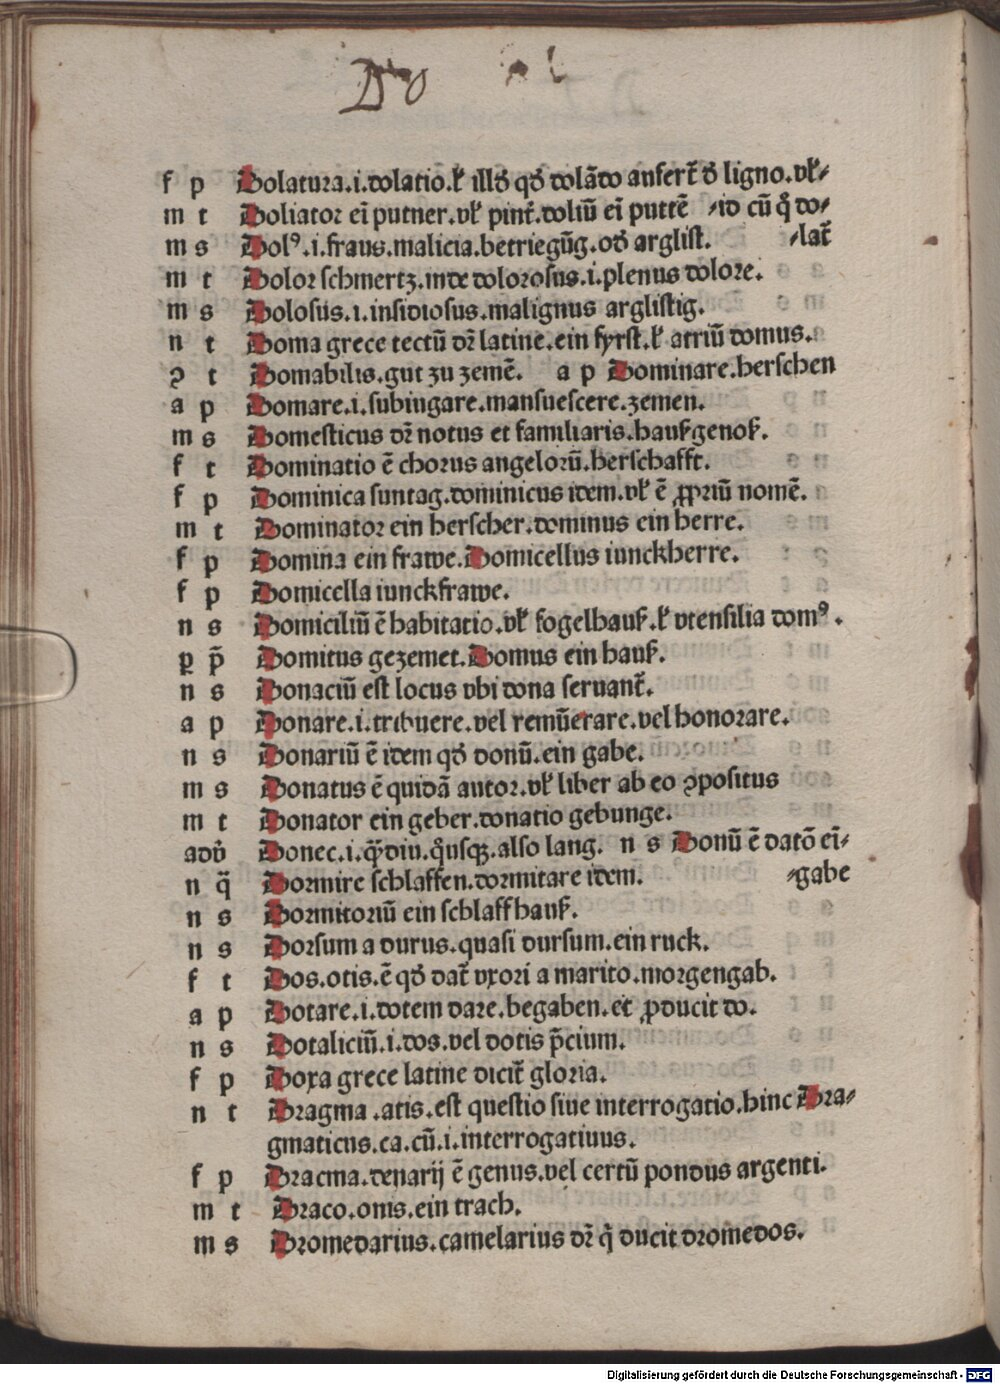 Do
f p Dolatura.i.dolatio.ł illđ qđ dolãdo aufert̃ đ ligno.vł⸗
m t Doliator eĩ putner.vł pint̃.doliũ eĩ puttẽ ⸗id cũ q̊ do⸗
m s Dolꝰ.i.fraus.malicia.betriegũg.ođ arglist. ⸗lat̃
m t Dolor schmertz.inde dolorosus.i.plenus dolore.
m s Dolosus.i.insidiosus.malignus arglistig.
n t Doma grece tectũ dr̃ latine.ein fyrst.ł atriũ domus.
ꝯ t Domabilis.gut zu zemẽ. a p Dominare.herschen
a p Domare.i.subiugare.mansuescere.zemen.
m s Domesticus dr̃ notus et familiaris.haußgenoß.
f t Dominatio ẽ chorus angelorũ.herschafft.
f p Dominica suntag.dominicus idem.vł ẽ ꝓpriũ nomẽ.
m t Dominator ein herscher.dominus ein herre.
f p Domina ein frawe.Domicellus iunckherre.
f p Domicella iunckfrawe.
n s Domiciliũ ẽ habitatio.vł fogelhauß.ł vtensilia domꝰ.
ꝑ p̃ Domitus gezemet.Domus ein hauß.
n s Donaciũ est locus vbi dona seruant̃.
a p Donare.i.tribuere.vel remũerare.vel honorare.
n s Donariũ ẽ idem qđ donũ.ein gabe.
m s Donatus ẽ quidã autor.vł liber ab eo ꝯpositus
m t Donator ein geber.donatio gebunge.
adv̉ Donec.i.q̃diu.q̊usqꝫ.also lang. n s Donũ ẽ datõ eĩ⸗
n q̃ Dormire schlaffen.dormitare idem. ⸗gabe
n s Dormitoriũ ein schlaffhauß.
n s Dorsum a durus.quasi dursum.ein ruck.
f t Dos.otis.ẽ qđ dat̃ vxori a marito.morgengab.
a p Dotare.i.dotem dare.begaben.et ꝓducit do.
n s Dotaliciũ.i.dos.vel dotis p̃cium.
f p Doxa grece latine dicit̃ gloria.
n t Dragma .atis.est questio siue interrogatio.hinc Dra⸗
gmaticus.ca.cũ.i.interrogatiuus.
f p Dracma.denarij ẽ genus.vel certũ pondus argenti.
m t Draco.onis.ein trach.
m s Dromedarius.camelarius dr̃ q̇ ducit dromedos.
Digitalisierung gefördert durch die Deutsche Forschungsgemeinschaft - DFG